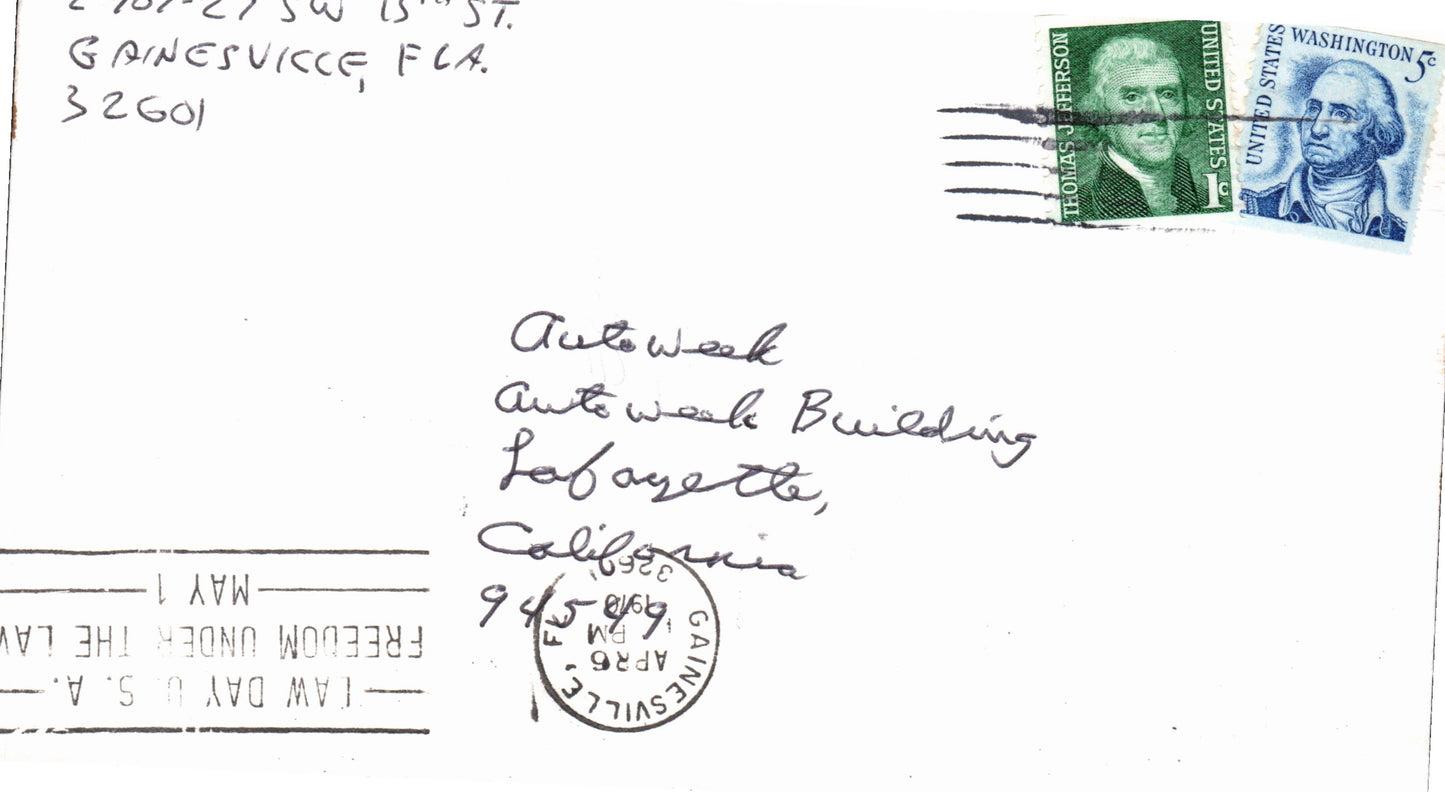 SW 13TH ST.
GAINESVILLE, FLA.
32601
THOMAS JEFFERSON
UNITED STATES
1c
UNITED STATES
WASHINGTON 5c
Autoweek
Autoweek Building
Lafayette,
California
94549
GAINESVILLE, FL
APR 6
PM
1970
3260
LAW DAY U.S.A.
FREEDOM UNDER THE LAW
MAY 1